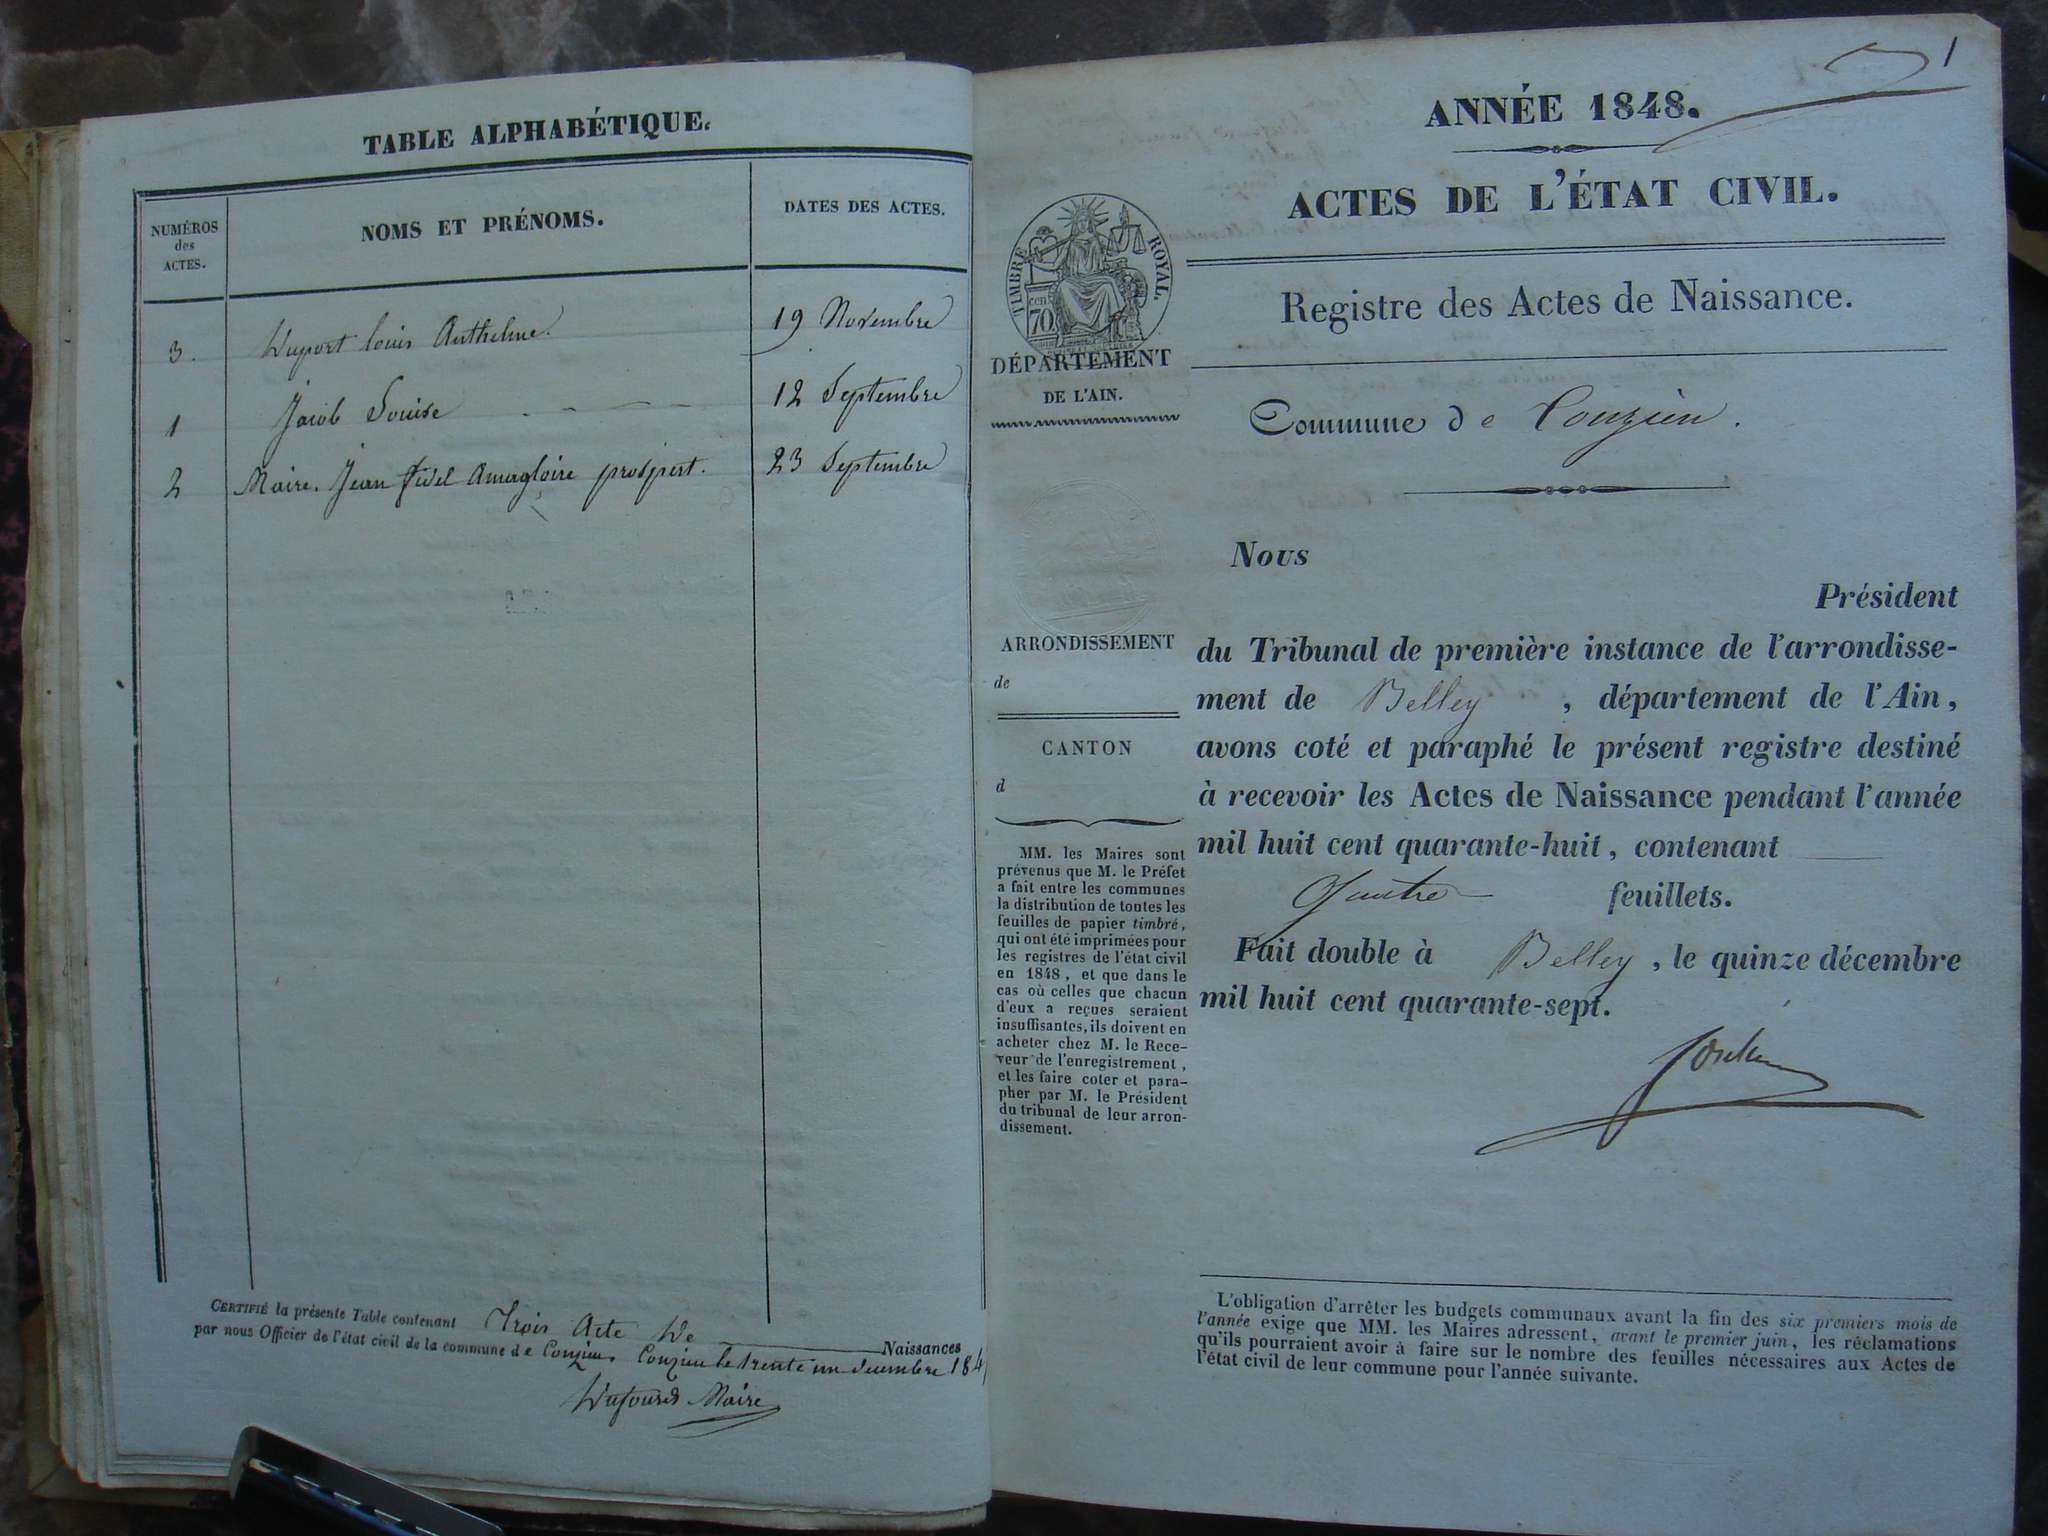 TABLE ALPHABÉTIQUE.
NUMÉROS
des
ACTES.
NOMS ET PRÉNOMS.
DATES DES ACTES.
3. Duport louis Anthelme. 19 Novembre
1 Jacob Louise 12 Septembre
2 Maire. Jean fidel Amagloire prospert. 23 Septembre
CERTIFIÉ la présente Table contenant Trois Acte De Naissances
par nous Officier de l'état civil de la commune de Conzieu Conzieu le trente un decembre 184
Dufour Maire
1
ANNÉE 1848.
ACTES DE L'ÉTAT CIVIL.
TIMBRE ROYAL.
cen
70
DÉPARTEMENT
DE L'AIN.
Registre des Actes de Naissance.
Commune de Conzieu.
ARRONDISSEMENT
de
CANTON
d
MM. les Maires sont
prévenus que M. le Préfet
a fait entre les communes
la distribution de toutes les
feuilles de papier timbré,
qui ont été imprimées pour
les registres de l'état civil
en 1848, et que dans le
cas où celles que chacun
d'eux a reçues seraient
insuffisantes, ils doivent en
acheter chez M. le Rece-
veur de l'enregistrement,
et les faire coter et para-
pher par M. le Président
du tribunal de leur arron-
dissement.
Nous
Président
du Tribunal de première instance de l'arrondisse-
ment de Belley, département de l'Ain,
avons coté et paraphé le présent registre destiné
à recevoir les Actes de Naissance pendant l'année
mil huit cent quarante-huit, contenant
Quatre feuillets.
Fait double à Belley, le quinze décembre
mil huit cent quarante-sept.
L'obligation d'arrêter les budgets communaux avant la fin des six premiers mois de
l'année exige que MM. les Maires adressent, avant le premier juin, les réclamations
qu'ils pourraient avoir à faire sur le nombre des feuilles nécessaires aux Actes de
l'état civil de leur commune pour l'année suivante.